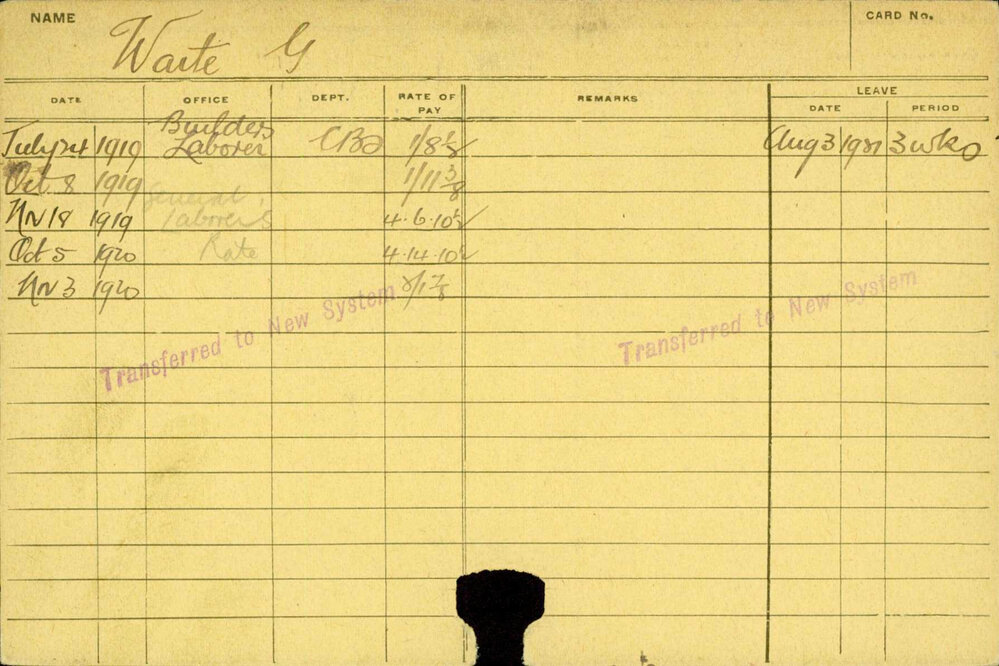 NAME
CARD No.
Waite G
DATE OFFICE DEPT. RATE OF PAY REMARKS LEAVE
DATE PERIOD
Builders
July 24 1919 Laborer CBD 1/8½ Aug 3 1921 3 wks
Oct 8 1919 1/11⅜
General
Nov 18 1919 Laborers 4.6.10½
Oct 5 1920 Rate 4.14.10½
Nov 3 1920 2/1⅞
Transferred to New System
Transferred to New System